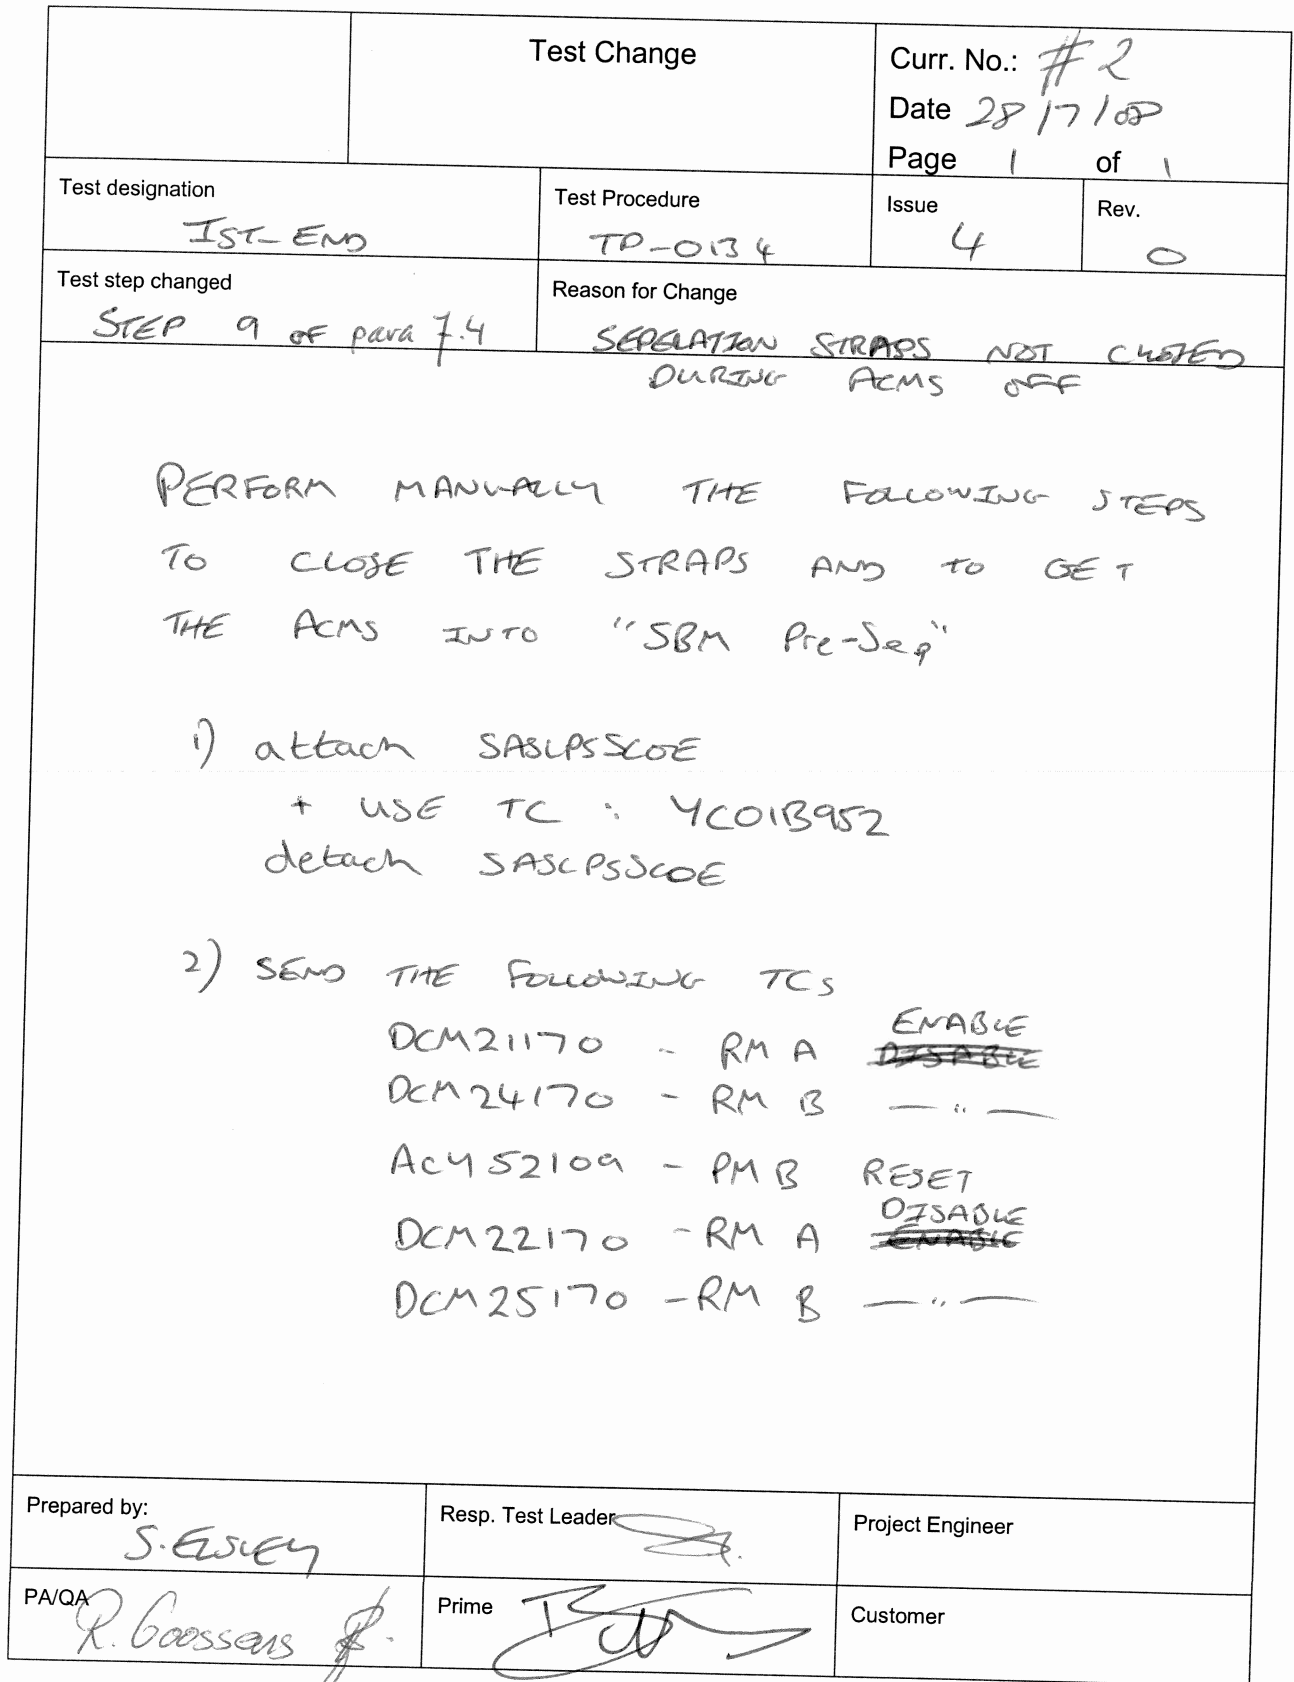 Test Change
Curr. No.: #2
Date 28/7/08
Page 1 of 1
Test designation
IST-END
Test Procedure
TP-0134
Issue
4
Rev.
0
Test step changed
STEP 9 OF para 7.4
Reason for Change
SEPERATION STRAPS NOT CLOSED
DURING ACMS OFF
PERFORM MANUALLY THE FOLLOWING STEPS
TO CLOSE THE STRAPS AND TO GET
THE ACMS INTO "SBM Pre-Seq"
1) attach SASLPSSCOE
+ USE TC : YC01B952
detach SASLPSSCOE
2) SEND THE FOLLOWING TCs
ENABLE
DCM21170 - RM A DISABLE
DCM24170 - RM B —"—
ACY52109 - PM B RESET
DISABLE
DCM22170 - RM A ENABLE
DCM25170 - RM B —"—
Prepared by:
S. ELSLEY
Resp. Test Leader
Project Engineer
PA/QA
R. Goossens
Prime
Customer